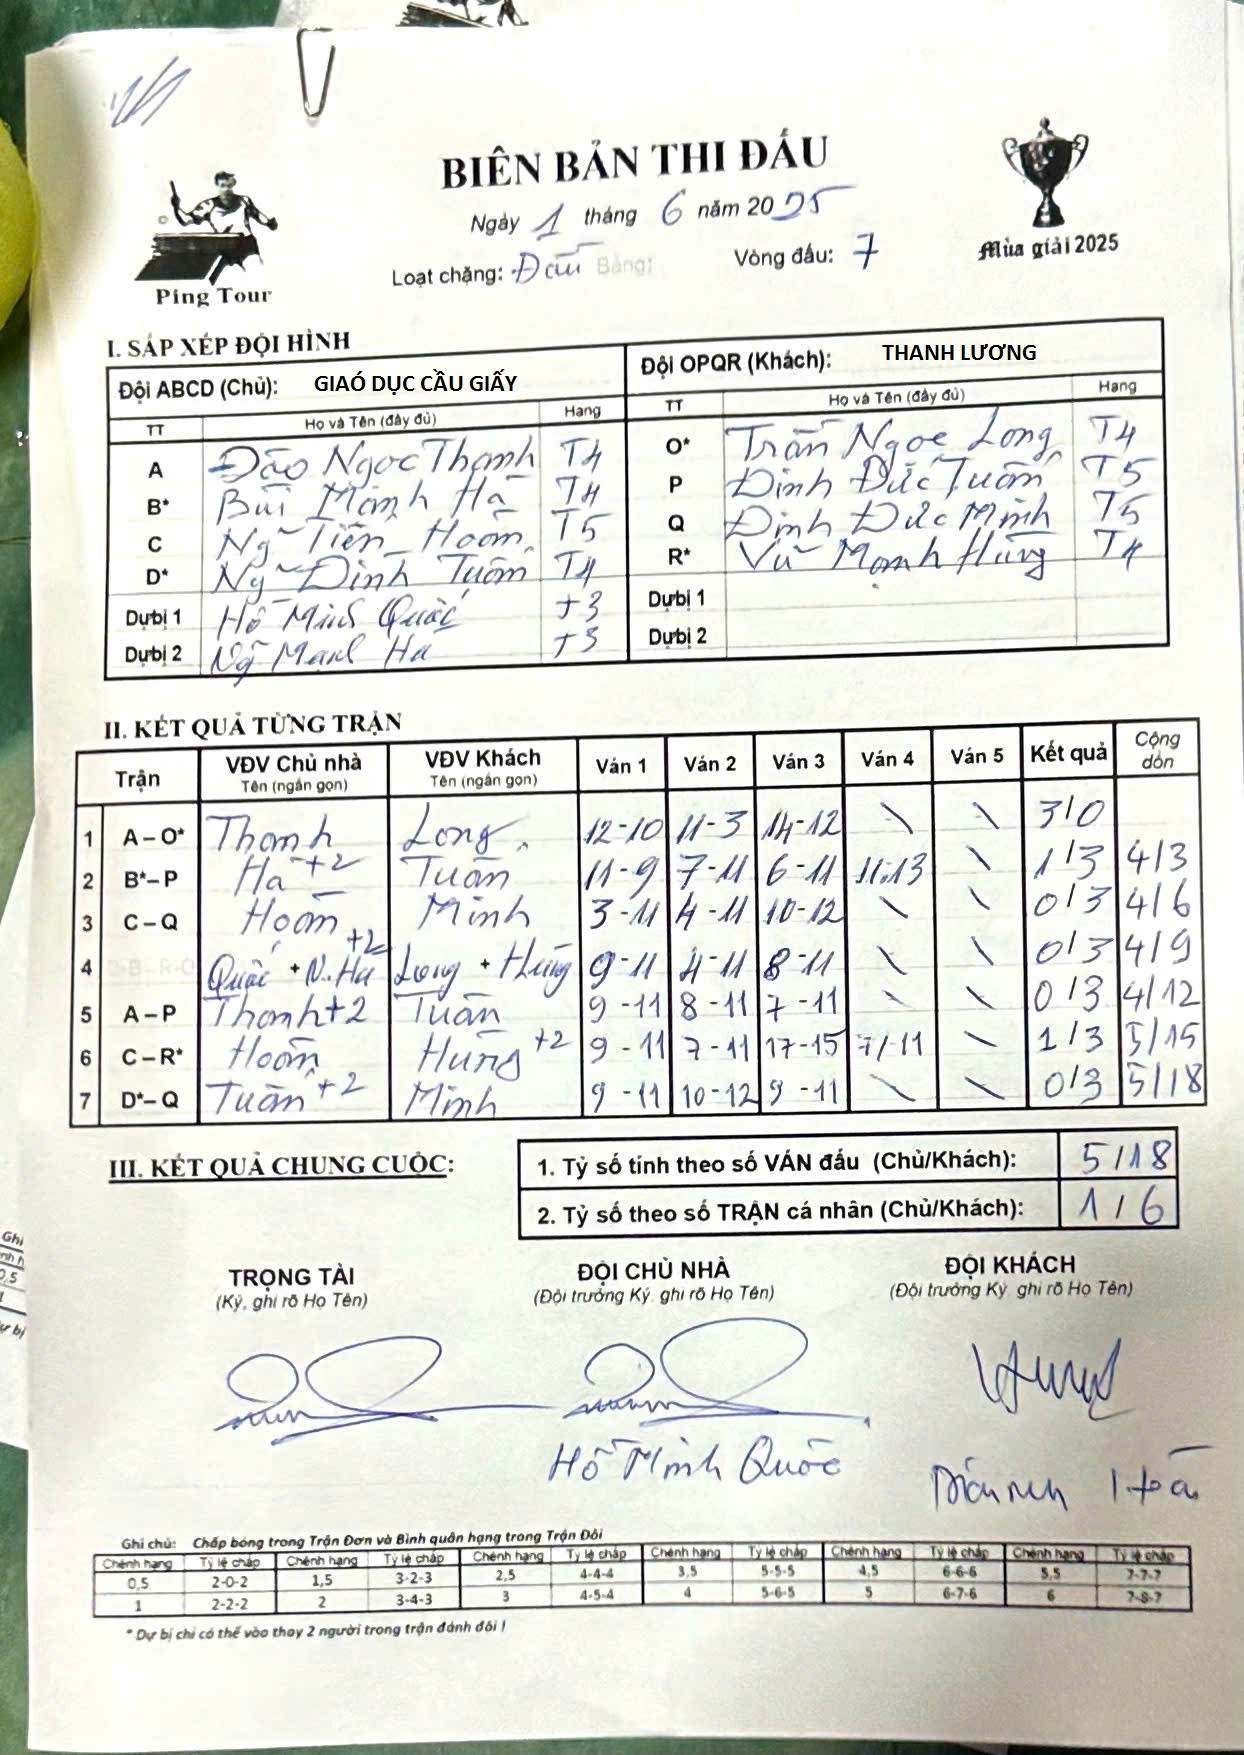 BIÊN BẢN THI ĐẤU
Ngày 1 tháng 6 năm 2025
Loạt chặng: Đấu Bảng: Vòng đấu: 7
Ping Tour
Mùa giải 2025
I. SẮP XẾP ĐỘI HÌNH
Đội ABCD (Chủ): GIAÓ DỤC CẦU GIẤY Đội OPQR (Khách): THANH LƯƠNG
TT Họ và Tên (đầy đủ) Hạng TT Họ và Tên (đầy đủ) Hạng
A Đào Ngọc Thanh T4 O* Trần Ngọc Long T4
B* Bùi Mạnh Hà T4 P Đinh Đức Tuấn T5
C Ng~ Tiến Hoàn T5 Q Đinh Đức Minh T5
D* Ng~ Đình Tuấn T4 R* Vũ Mạnh Hùng T4
Dự bị 1 Hồ Minh Quốc +3 Dự bị 1
Dự bị 2 Ng~ Mạnh Hà Dự bị 2
II. KẾT QUẢ TỪNG TRẬN
Trận VĐV Chủ nhà Tên (ngắn gọn) VĐV Khách Tên (ngắn gọn) Ván 1 Ván 2 Ván 3 Ván 4 Ván 5 Kết quả Cộng dồn
1 A – O* Thanh Long 12-10 11-3 14-12 \ \ 3/0
2 B* – P Hà +2 Tuấn 11-9 7-11 6-11 11-13 \ 1/3 4/3
3 C – Q Hoàn Minh 3-11 4-11 10-12 \ \ 0/3 4/6
4 Quốc + N.Hà +2 Long + Hùng 9-11 4-11 8-11 \ \ 0/3 4/9
5 A – P Thanh+2 Tuấn 9-11 8-11 7-11 \ \ 0/3 4/12
6 C – R* Hoàn Hùng +2 9-11 7-11 17-15 7/-11 \ 1/3 5/15
7 D* – Q Tuấn +2 Minh 9-11 10-12 9-11 \ \ 0/3 5/18
III. KẾT QUẢ CHUNG CUỘC:
1. Tỷ số tính theo số VÁN đấu (Chủ/Khách): 5/18
2. Tỷ số theo số TRẬN cá nhân (Chủ/Khách): 1/6
TRỌNG TÀI ĐỘI CHỦ NHÀ ĐỘI KHÁCH
(Ký, ghi rõ Họ Tên) (Đội trưởng Ký, ghi rõ Họ Tên) (Đội trưởng Ký, ghi rõ Họ Tên)
Hồ Minh Quốc
Ghi chú: Chấp bóng trong Trận Đơn và Bình quân hạng trong Trận Đôi
Chênh hạng Tỷ lệ chấp Chênh hạng Tỷ lệ chấp Chênh hạng Tỷ lệ chấp Chênh hạng Tỷ lệ chấp Chênh hạng Tỷ lệ chấp Chênh hạng Tỷ lệ chấp
0,5 2-0-2 1,5 3-2-3 2,5 4-4-4 3,5 5-5-5 4,5 6-6-6 5,5 7-7-7
1 2-2-2 2 3-4-3 3 4-5-4 4 5-6-5 5 6-7-6 6 7-8-7
* Dự bị chỉ có thể vào thay 2 người trong trận đánh đôi !